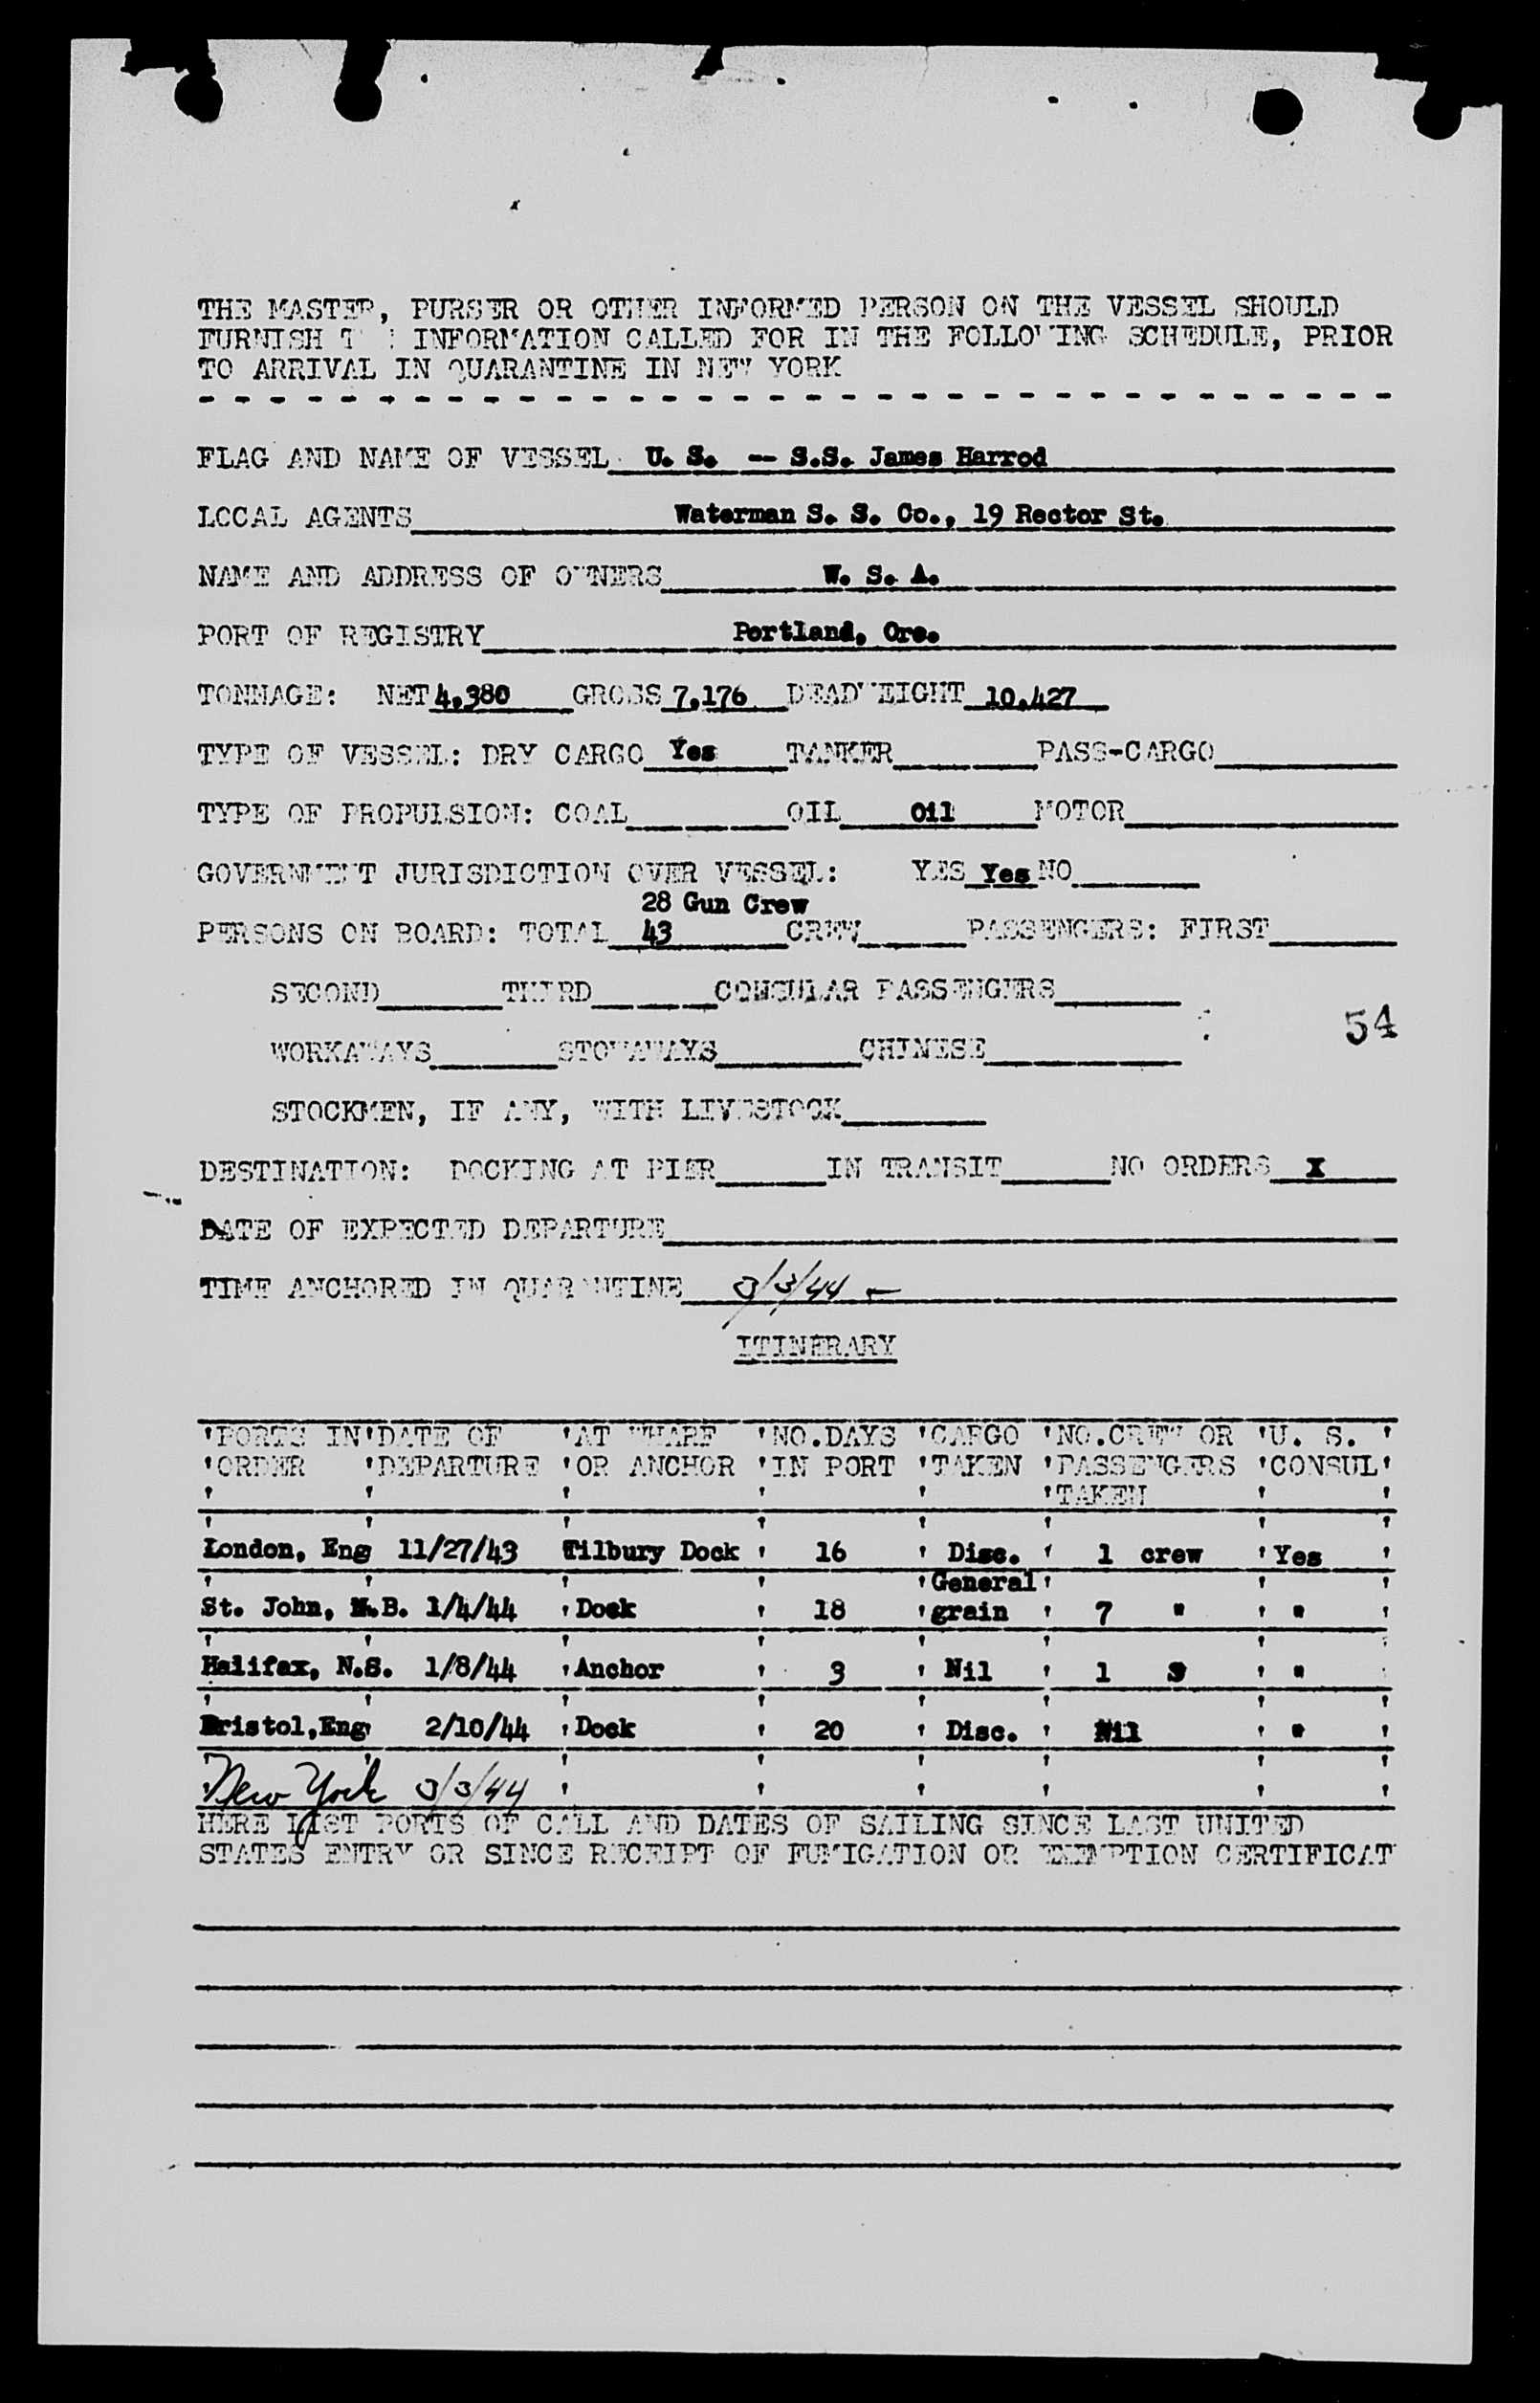 THE MASTER, PURSER OR OTHER INFORMED PERSON ON THE VESSEL SHOULD
FURNISH INFORMATION CALLED FOR IN THE FOLLOWING SCHEDULE, PRIOR
TO ARRIVAL IN QUARANTINE IN NEW YORK
FLAG AND NAME OF VESSEL U. S. -- S.S. James Harrod
LOCAL AGENTS Waterman S. S. Co., 19 Rector St.
NAME AND ADDRESS OF OWNERS W. S. A.
PORT OF REGISTRY Portland, Ore.
TONNAGE: NET 4,380 GROSS 7,176 DEADWEIGHT 10,427
TYPE OF VESSEL: DRY CARGO Yes TANKER PASS-CARGO
TYPE OF PROPULSION: COAL OIL Oil MOTOR
GOVERNMENT JURISDICTION OVER VESSEL: YES Yes NO
28 Gun Crew
PERSONS ON BOARD: TOTAL 43 CREW PASSENGERS: FIRST
SECOND THIRD CONSULAR PASSENGERS
54
WORKAWAYS STOWAWAYS CHINESE
STOCKMEN, IF ANY, WITH LIVESTOCK
DESTINATION: DOCKING AT PIER IN TRANSIT NO ORDERS X
DATE OF EXPECTED DEPARTURE
TIME ANCHORED IN QUARANTINE 3/3/44 -
ITINERARY
'PORTS IN'DATE OF 'AT WHARF 'NO.DAYS 'CARGO 'NO.CREW OR 'U. S. '
'ORDER 'DEPARTURE 'OR ANCHOR 'IN PORT 'TAKEN 'PASSENGERS 'CONSUL'
'TAKEN
London, Eng 11/27/43 Tilbury Dock ' 16 ' Disc. ' 1 crew ' Yes '
' General '
St. John, N.B. 1/4/44 ' Dock ' 18 ' grain ' 7 " ' " '
Halifax, N.S. 1/8/44 ' Anchor ' 3 ' Nil ' 1 ' "
Bristol,Eng' 2/10/44 ' Dock ' 20 ' Disc. ' Nil ' " '
New York 3/3/44 ' ' ' ' ' '
HERE LIST PORTS OF CALL AND DATES OF SAILING SINCE LAST UNITED
STATES ENTRY OR SINCE RECEIPT OF FUMIGATION OR EXEMPTION CERTIFICAT